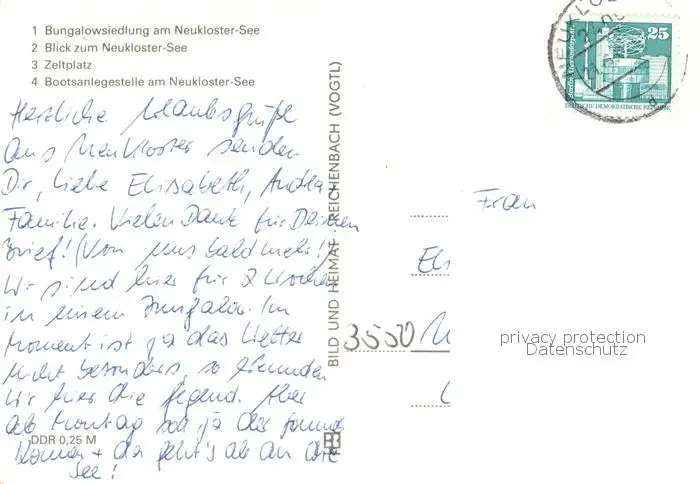 1 Bungalowsiedlung am Neukloster-See
2 Blick zum Neukloster-See
3 Zeltplatz
4 Bootsanlegestelle am Neukloster-See
Herzliche Urlaubsgrüße
aus Neukloster senden
Dir, liebe Elisabeth, Andrea
Familie. Vielen Dank für Deinen
Brief! (Von uns bald mehr!)
Wir sind hier für 2 Wochen
in einem Bungalow. Im
Moment ist ja das Wetter
nicht besonders, so erkunden
wir hier die Gegend. Aber
ab Montag soll ja der Sommer
kommen + da geht's ab an die
See!
DDR 0,25 M
BILD UND HEIMAT REICHENBACH (VOGTL)
25
DEUTSCHE DEMOKRATISCHE REPUBLIK
Frau
3550
privacy protection
Datenschutz